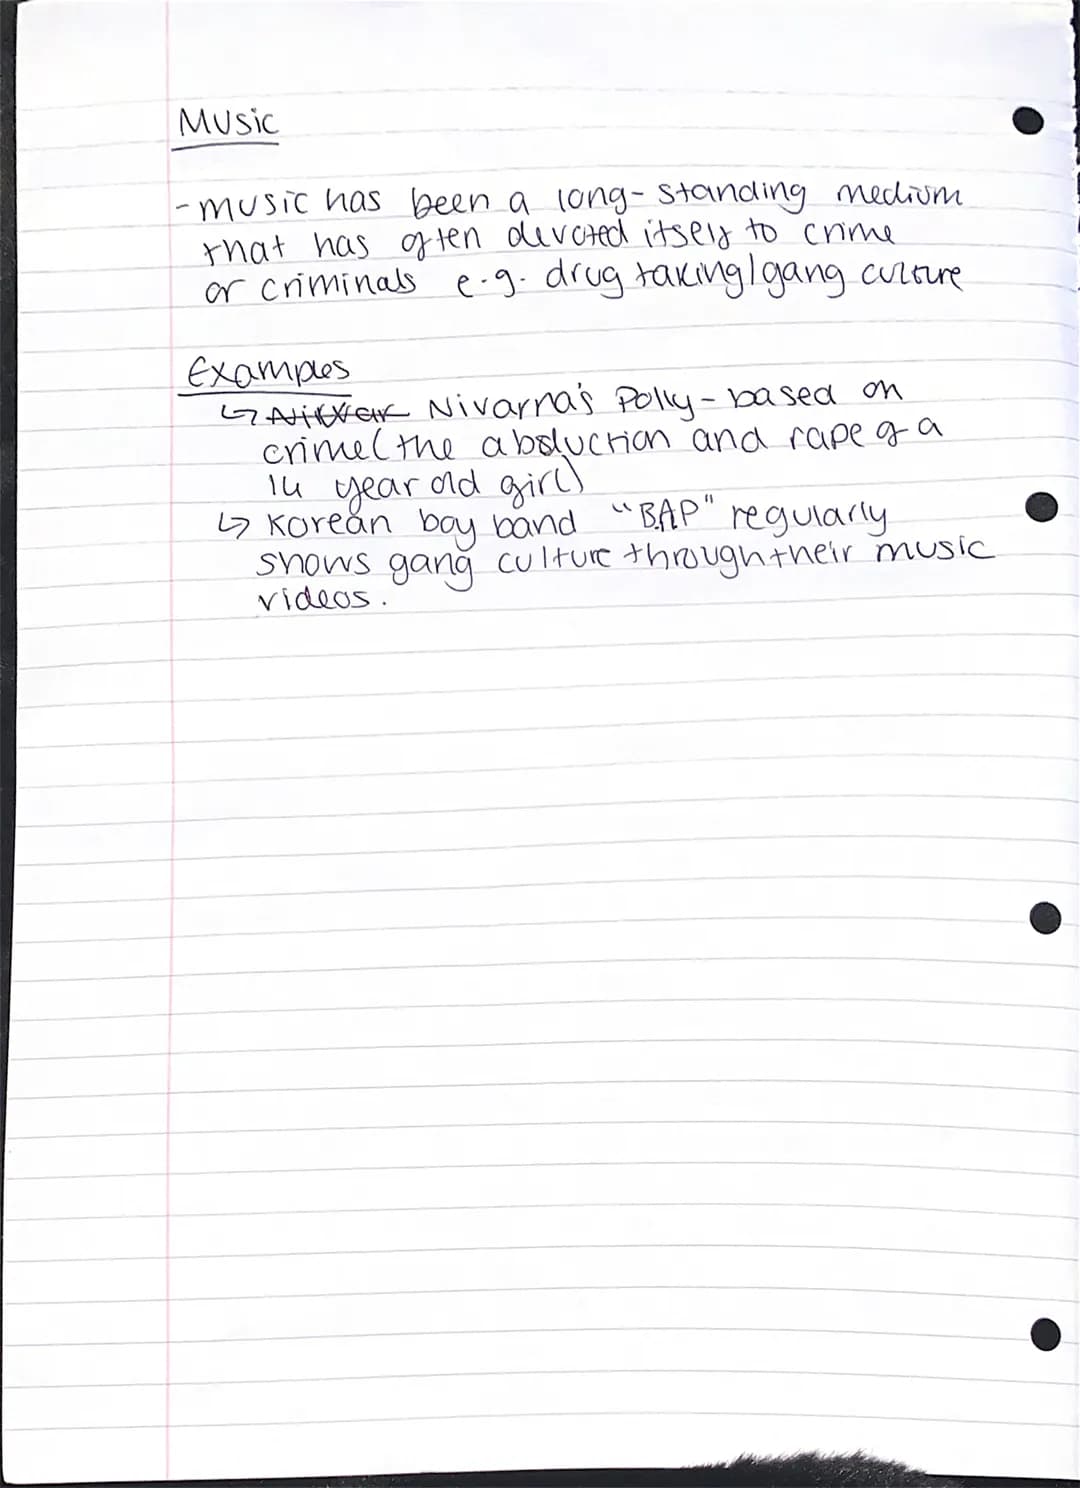 Music
- music has been a long-standing medium
that has often devoted itself to crime
or criminals e.g. drug taking/gang culture
Examples
↳ Nivarna's Polly - based on
crime (the abduction and rape of a
14 year old girl)
↳ Korean boy band "BAP" regularly
shows gang culture through their music
videos.